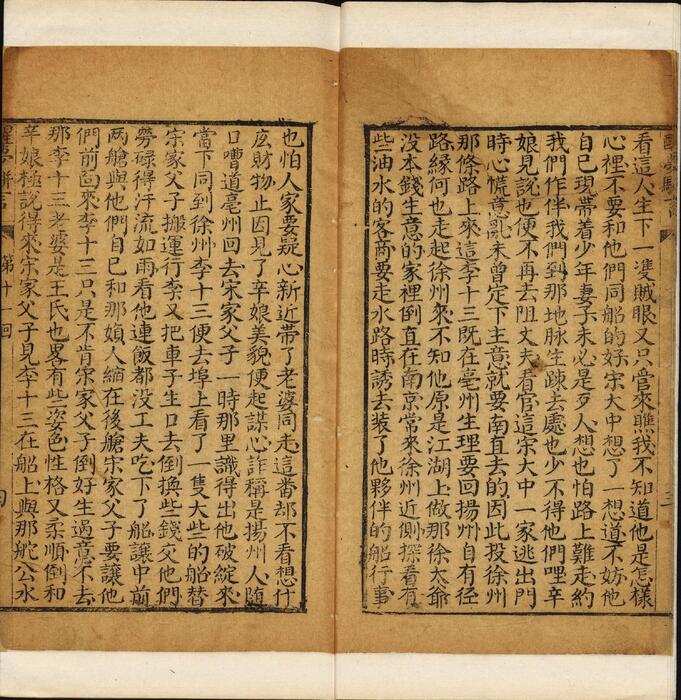 看這人生下一隻賊眼又只管來瞧我不知道他是怎樣
心裡不要和他們同船的好宋大中想了一想道不妨他
自己現帶着少年妻子未必是歹人想也怕路上難走約
我們作伴我們到那地脉生踈去處也少不得他們哩辛
娘見說也便不再去阻丈夫看官這宋大中一家逃出門
時心慌意亂未曾定下主意就要南直去的因此投徐州
那條路上來這李十三既在亳州生理要回揚州自有徑
路緣何也走起徐州來不知他原是江湖上做那徐大爺
没本錢生意的家裡倒直在南京常來徐州近側探看有
些油水的客商要走水路時誘去裝了他夥伴的船行事
也怕人家要疑心新近帶了老婆同走這番却不看想什
庅財物止因見了辛娘美貌便起謀心詐稱是揚州人随
口嘈道亳州回去宋家父子一時那里識得出他破綻來
當下同到徐州李十三便去埠上看了一隻大些的船替
宋家父子搬運行李又把車子生口去倒換些錢交他們
勞碌得汗流如雨看他連飯都没工夫吃下了船讓中前
两艙與他們自已和那媍人縮在後艙宋家父子要讓他
們前面來李十三只是不肯宋家父子倒好生過意不去
那李十三老婆是王氏也畧有些姿色性格又柔順倒和
辛娘極說得來宋家父子見李十三在船上與那舵公水
醒夢駢言
第十一回